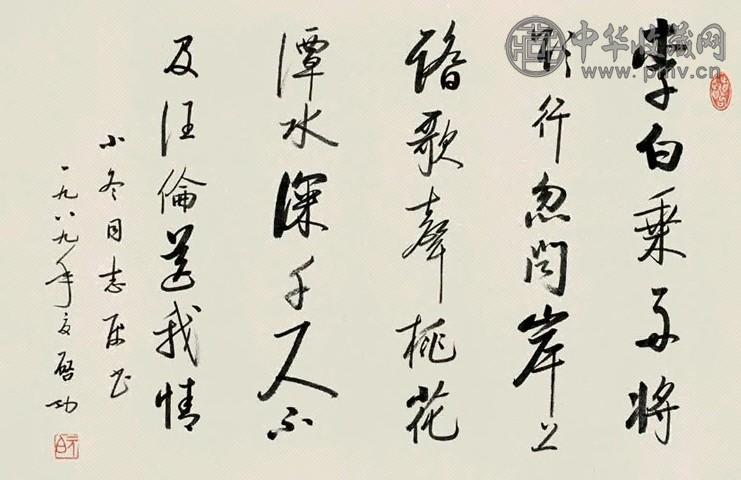 李白乘舟將
欲行忽聞岸上
踏歌聲桃花
潭水深千尺不
及汪倫送我情
小冬同志屬書
一九八九年夏啓功
中华收藏网
www.pmv.cn